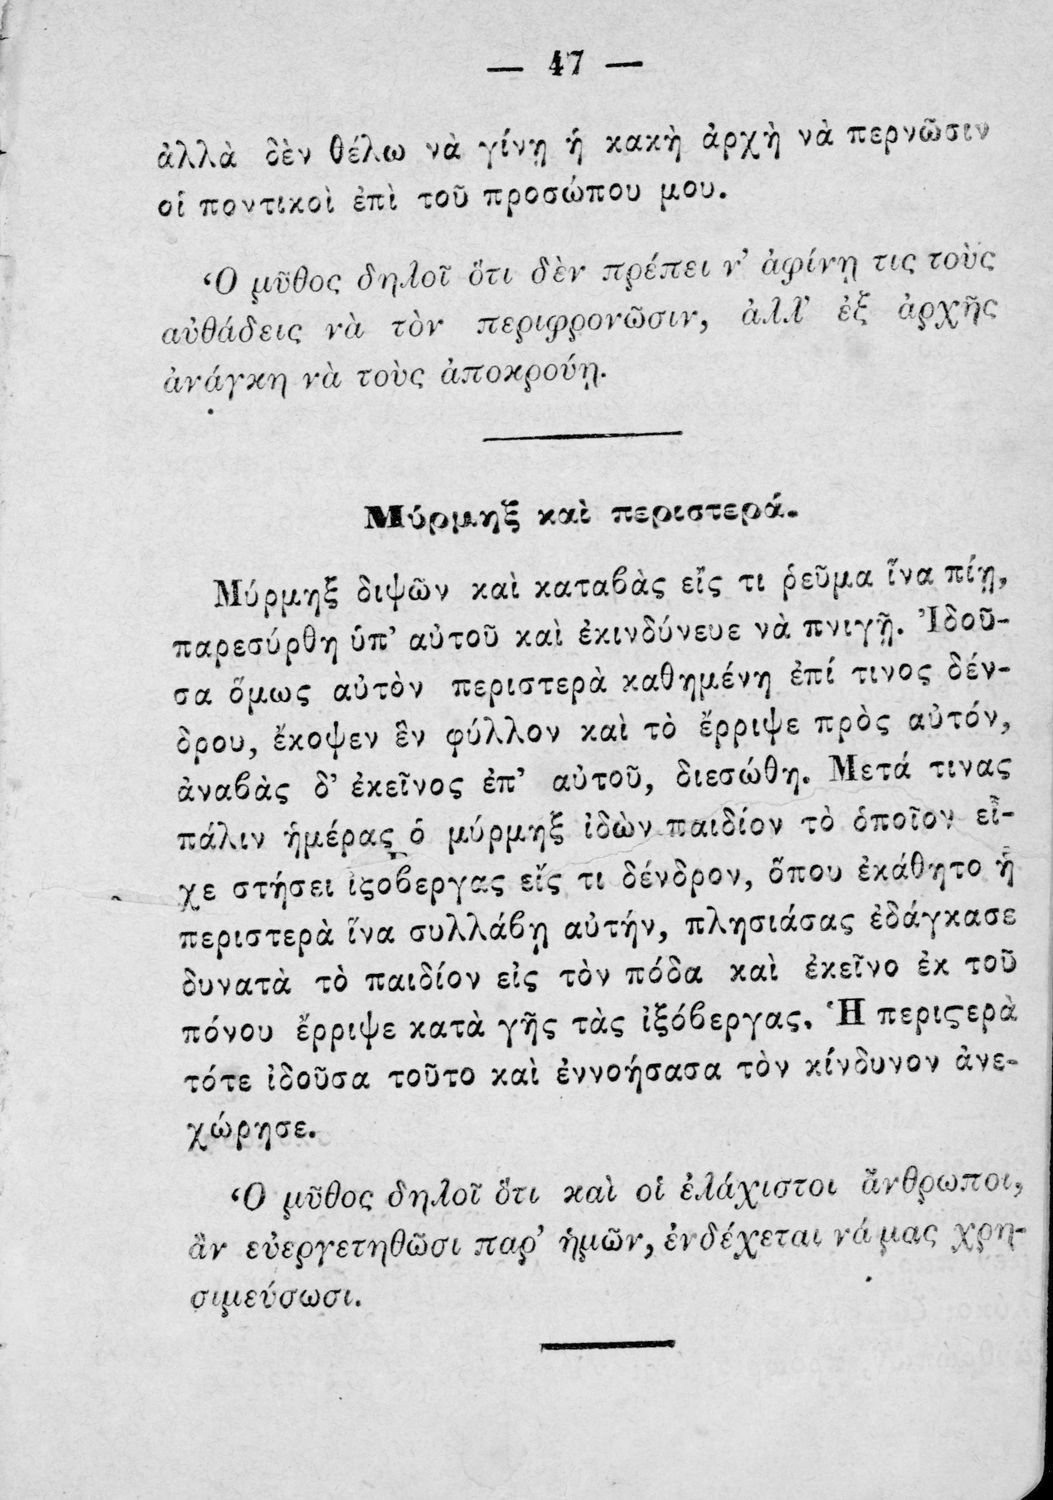 — 47 —
ἀλλὰ δὲν θέλω νὰ γίνῃ ἡ κακὴ ἀρχὴ νὰ περνῶσιν
οἱ ποντικοὶ ἐπὶ τοῦ προσώπου μου.
Ὁ μῦθος δηλοῖ ὅτι δὲν πρέπει ν’ ἀφίνῃ τις τοὺς
αὐθάδεις νὰ τὸν περιφρονῶσιν, ἀλλ’ ἐξ ἀρχῆς
ἀνάγκη νὰ τοὺς ἀποκρούῃ.
Μύρμηξ καὶ περιστερά.
Μύρμηξ διψῶν καὶ καταβὰς εἴς τι ῥεῦμα ἵνα πίῃ,
παρεσύρθη ὑπ’ αὐτοῦ καὶ ἐκινδύνευε νὰ πνιγῇ. Ἰδοῦ-
σα ὅμως αὐτὸν περιστερὰ καθημένη ἐπί τινος δέν-
δρου, ἔκοψεν ἓν φύλλον καὶ τὸ ἔρριψε πρὸς αὐτόν,
ἀναβὰς δ’ ἐκεῖνος ἐπ’ αὐτοῦ, διεσώθη. Μετά τινας
πάλιν ἡμέρας ὁ μύρμηξ ἰδὼν παιδίον τὸ ὁποῖον εἶ-
χε στήσει ἰξοβεργας εἴς τι δένδρον, ὅπου ἐκάθητο ἡ
περιστερὰ ἵνα συλλάβῃ αὐτήν, πλησιάσας ἐδάγκασε
δυνατὰ τὸ παιδίον εἰς τὸν πόδα καὶ ἐκεῖνο ἐκ τοῦ
πόνου ἔρριψε κατὰ γῆς τὰς ἰξόβεργας. Ἡ περιϛερὰ
τότε ἰδοῦσα τοῦτο καὶ ἐννοήσασα τὸν κίνδυνον ἀνε-
χώρησε.
Ὁ μῦθος δηλοῖ ὅτι καὶ οἱ ἐλάχιστοι ἄνθρωποι,
ἂν εὐεργετηθῶσι παρ’ ἡμῶν, ἐνδέχεται νά μας χρη-
σιμεύσωσι.